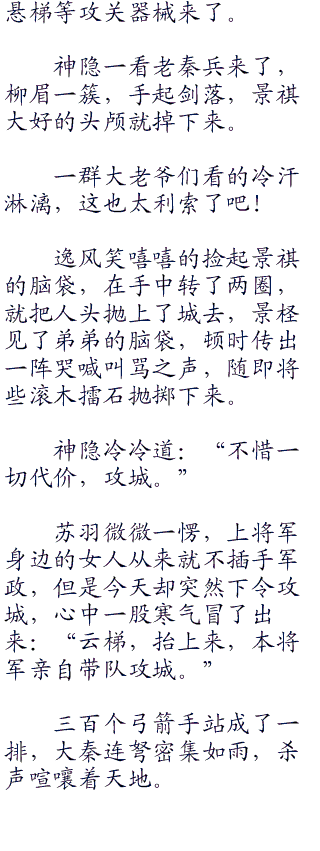 悬梯等攻关器械来了。
神隐一看老秦兵来了，
柳眉一簇，手起剑落，景祺
大好的头颅就掉下来。
一群大老爷们看的冷汗
淋漓，这也太利索了吧！
逸风笑嘻嘻的捡起景祺
的脑袋，在手中转了两圈，
就把人头抛上了城去，景柽
见了弟弟的脑袋，顿时传出
一阵哭喊叫骂之声，随即将
些滚木擂石抛掷下来。
神隐冷冷道：“不惜一
切代价，攻城。”
苏羽微微一愣，上将军
身边的女人从来就不插手军
政，但是今天却突然下令攻
城，心中一股寒气冒了出
来：“云梯，抬上来，本将
军亲自带队攻城。”
三百个弓箭手站成了一
排，大秦连弩密集如雨，杀
声喧嚷着天地。